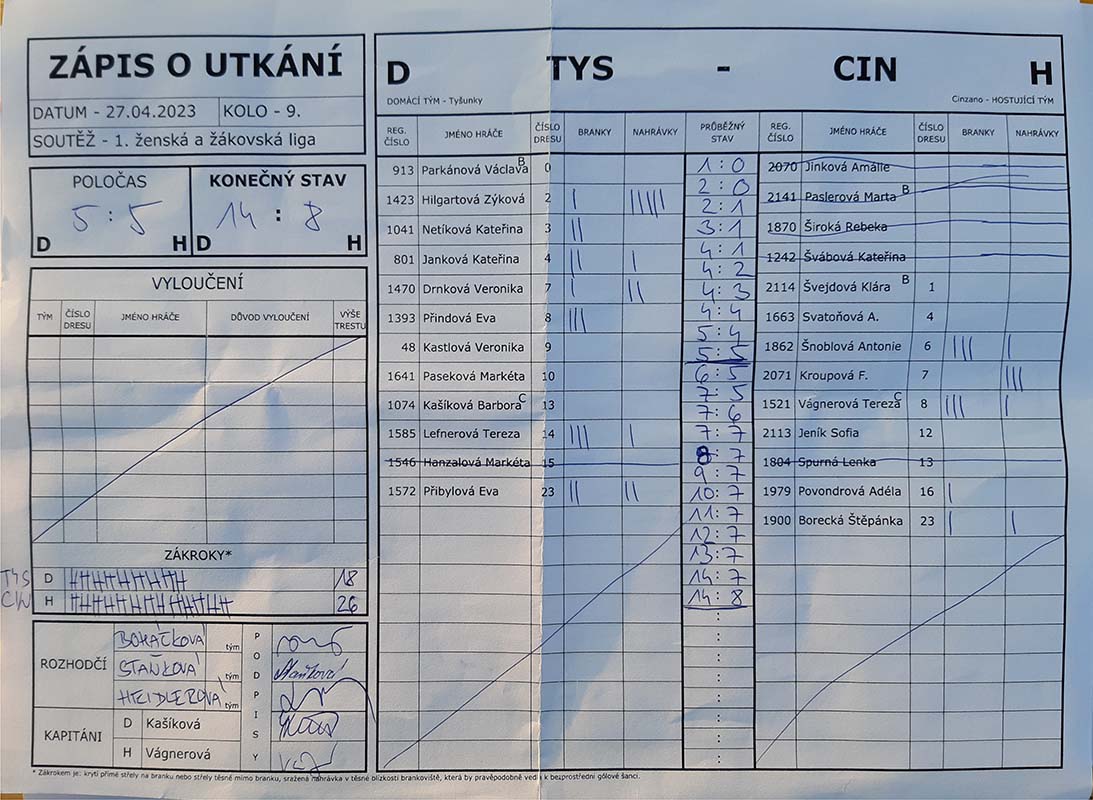 ZÁPIS O UTKÁNÍ
DATUM - 27.04.2023 KOLO - 9.
SOUTĚŽ - 1. ženská a žákovská liga
POLOČAS KONEČNÝ STAV
5 : 5 14 : 8
D H D H
VYLOUČENÍ
TÝM ČÍSLO DRESU JMÉNO HRÁČE DŮVOD VYLOUČENÍ VÝŠE TRESTU
ZÁKROKY*
TYS D 18
CIN H 26
ROZHODČÍ
BOHÁČKOVÁ tým
STAŇKOVÁ tým
HEIDLEROVÁ tým
PODPISY
Staňková
KAPITÁNI
D Kašíková
H Vágnerová
D TYS - CIN H
DOMÁCÍ TÝM - Tyšunky Cinzano - HOSTUJÍCÍ TÝM
REG. ČÍSLO JMÉNO HRÁČE ČÍSLO DRESU BRANKY NAHRÁVKY PRŮBĚŽNÝ STAV REG. ČÍSLO JMÉNO HRÁČE ČÍSLO DRESU BRANKY NAHRÁVKY
913 Parkánová Václava B 0
1423 Hilgartová Zýková 2 | |||||
1041 Netíková Kateřina 3 ||
801 Janková Kateřina 4 || |
1470 Drnková Veronika 7 | ||
1393 Přindová Eva 8 |||
48 Kastlová Veronika 9
1641 Paseková Markéta 10
1074 Kašíková Barbora C 13
1585 Lefnerová Tereza 14 ||| |
1546 Hanzalová Markéta 15
1572 Přibylová Eva 23 || ||
1 : 0
2 : 0
2 : 1
3 : 1
4 : 1
4 : 2
4 : 3
4 : 4
5 : 4
5 : 5
6 : 5
7 : 5
7 : 6
7 : 7
8 : 7
9 : 7
10 : 7
11 : 7
12 : 7
13 : 7
14 : 7
14 : 8
2070 Jinková Amálie
2141 Paslerová Marta B
1870 Široká Rebeka
1242 Švábová Kateřina
2114 Švejdová Klára B 1
1663 Svatoňová A. 4
1862 Šnoblová Antonie 6 ||| |
2071 Kroupová F. 7 |||
1521 Vágnerová Tereza C 8 ||| |
2113 Jeník Sofia 12
1804 Spurná Lenka 13
1979 Povondrová Adéla 16 |
1900 Borecká Štěpánka 23 | |
* Zákrokem je: krytí přímé střely na branku nebo střely těsně mimo branku, sražená nahrávka v těsné blízkosti brankoviště, která by pravěpodobně vedla k bezprostřední gólové šanci.